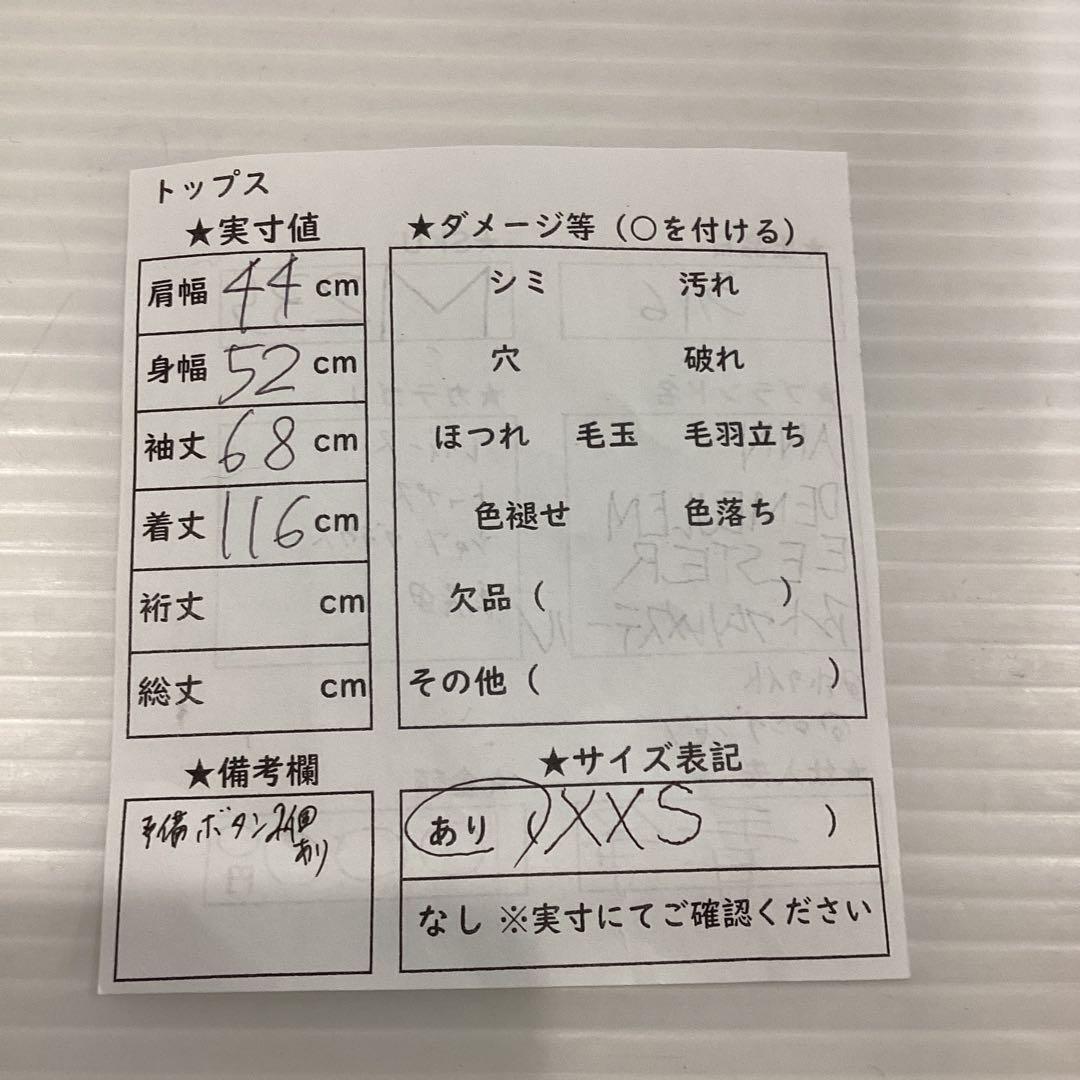 トップス
★実寸値
肩幅 44 cm
身幅 52 cm
袖丈 68 cm
着丈 116 cm
裄丈 cm
総丈 cm
★備考欄
予備ボタン2個
あり
★ダメージ等（○を付ける）
シミ 汚れ
穴 破れ
ほつれ 毛玉 毛羽立ち
色褪せ 色落ち
欠品（ ）
その他（ ）
★サイズ表記
あり（XXS ）
なし ※実寸にてご確認ください